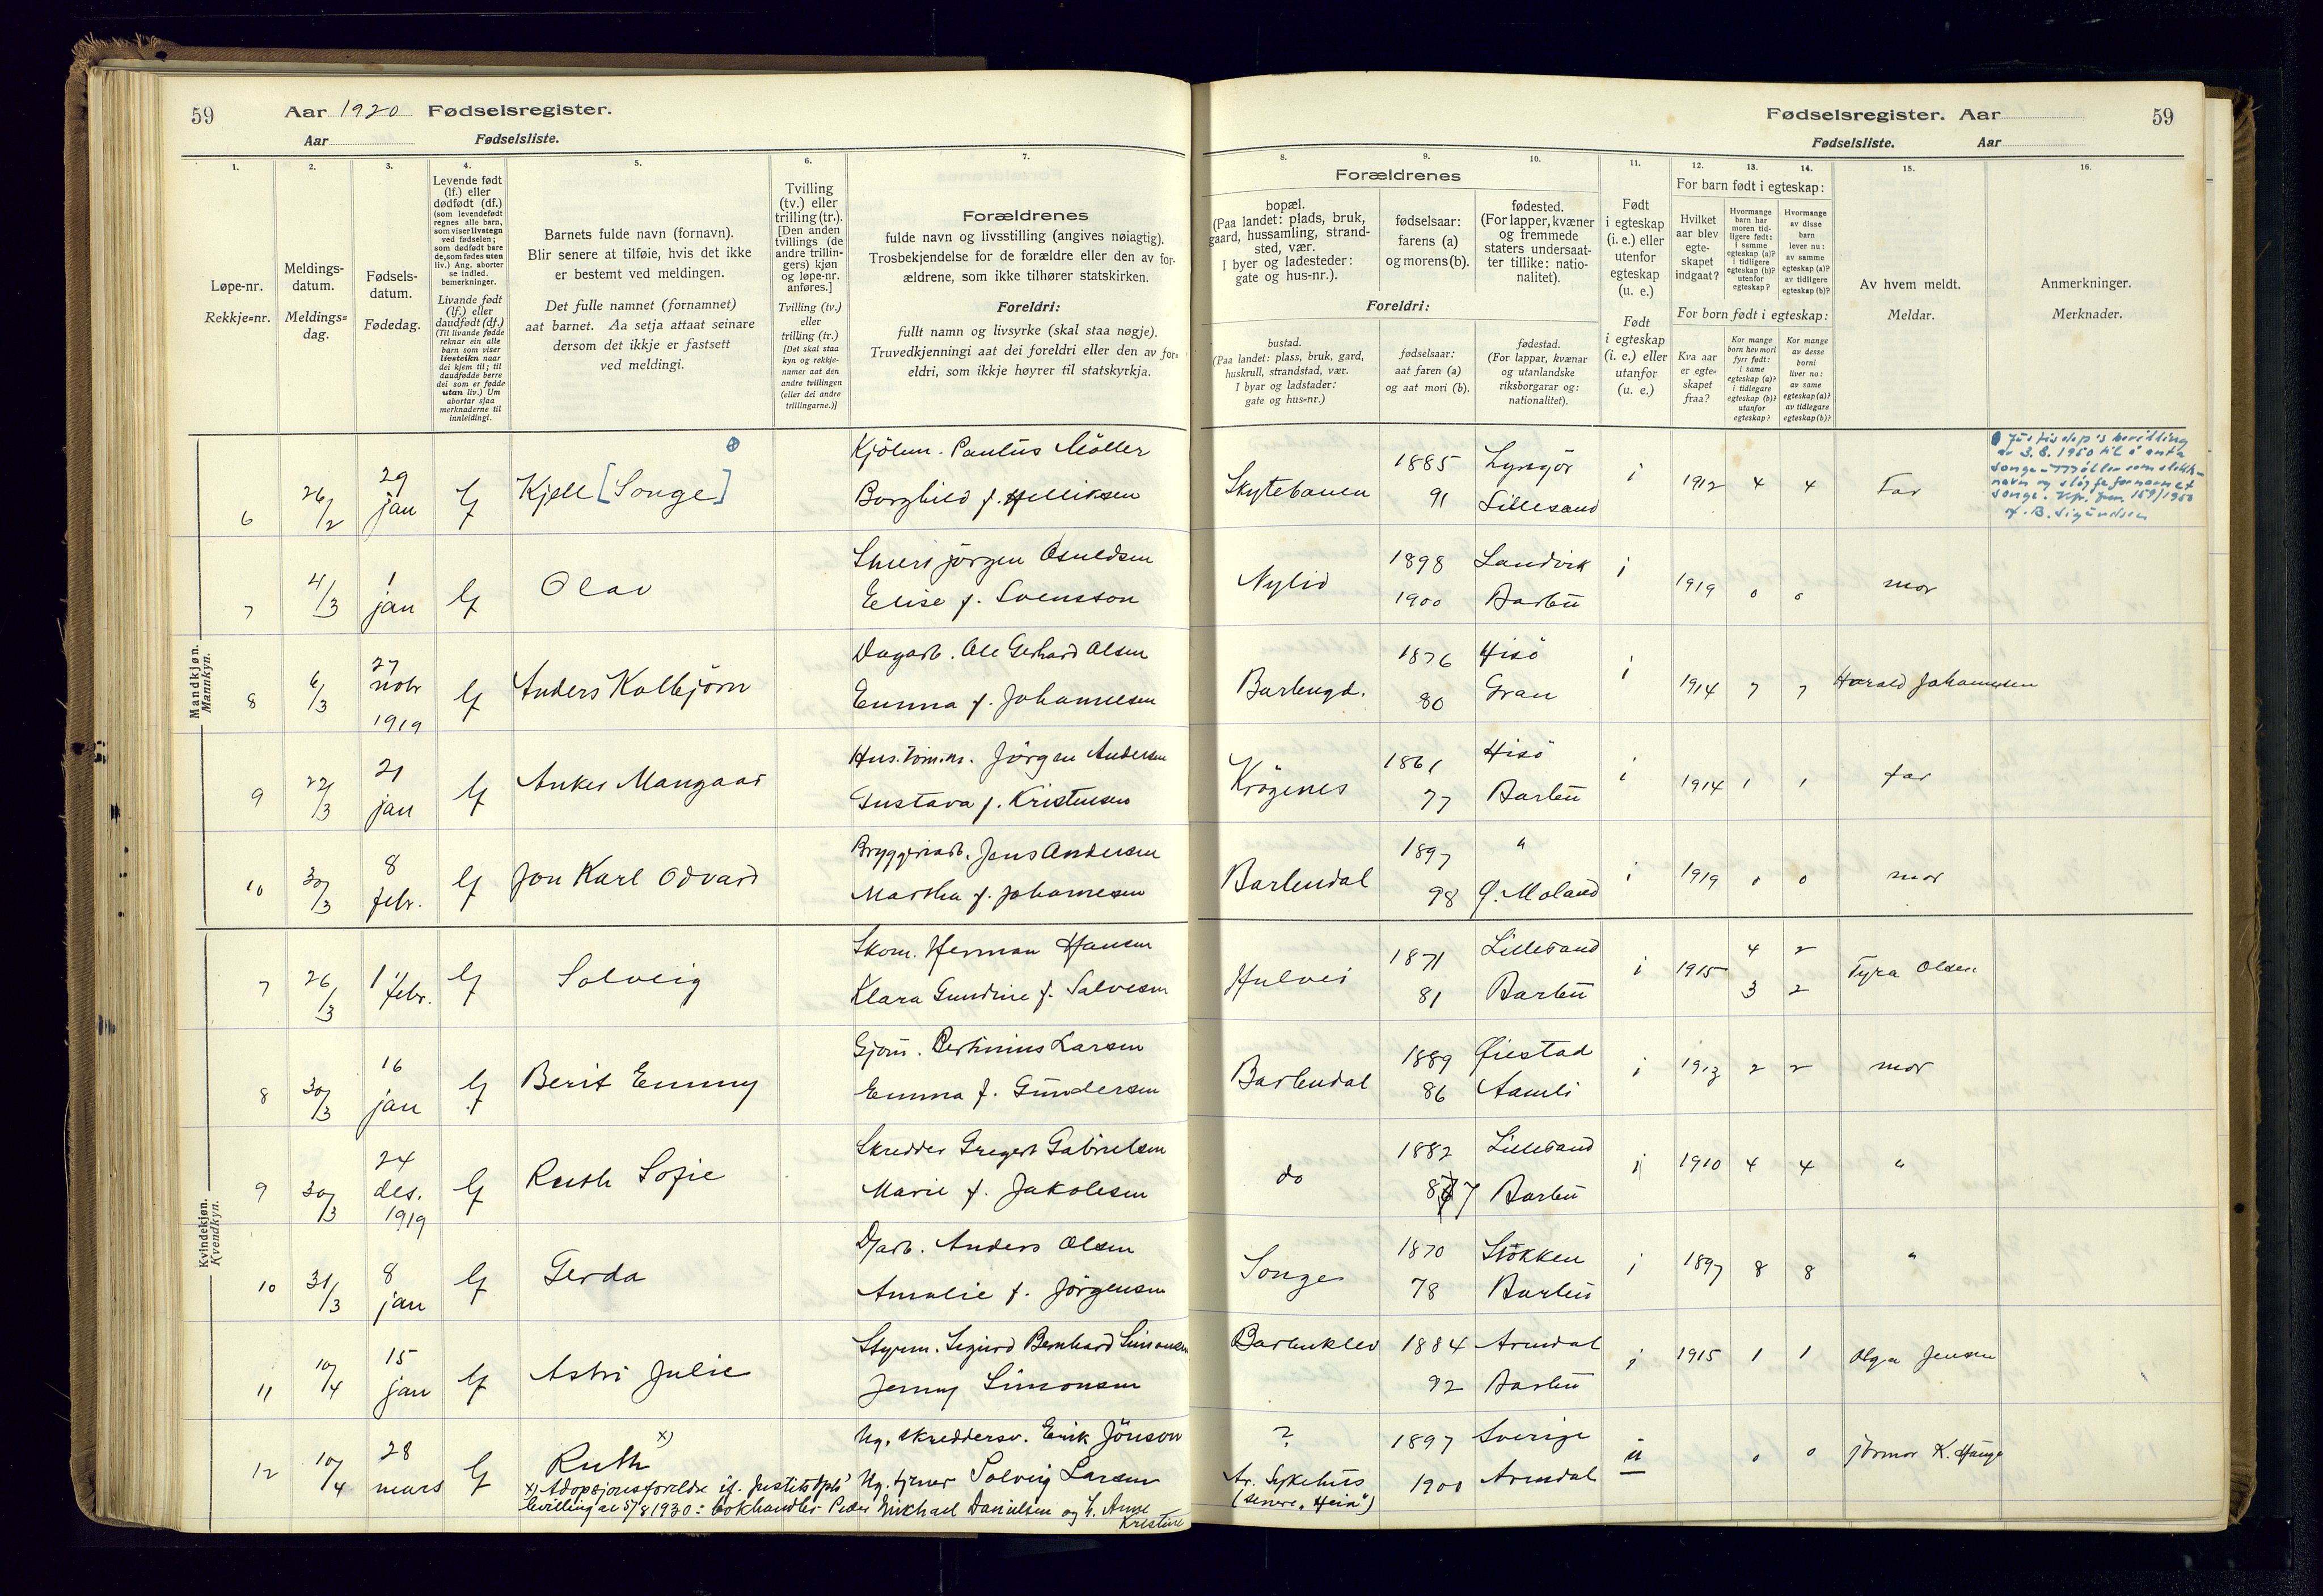 59
Aar 1920 Fødselsregister.
Aar Fødselsliste.
1.
2.
3.
4.
5.
6.
7.
Løpe-nr.
Rekkje=nr.
Meldings-
datum.
Meldings=
dag.
Fødsels-
datum.
Fødedag.
Levende født
(lf.) eller
dødfødt (df.)
(som levendefødt
regnes alle barn,
som viser livstegn
ved fødselen;
som dødfødt bare
de, som fødes uten
liv.) Ang. aborter
se indled.
bemerkninger.
Livande født
(lf.) eller
daudfødt (df.)
(Til livande fødde
reknar ein alle
barn som viser
livsteikn naar
dei kjem til; til
daudfødde berre
dei som er fødde
utan liv.) Um
abortar sjaa
merknaderne til
innleidingi.
Barnets fulde navn (fornavn).
Blir senere at tilføie, hvis det ikke
er bestemt ved meldingen.
Det fulle namnet (fornamnet)
aat barnet. Aa setja attaat seinare
dersom det ikkje er fastsett
ved meldingi.
Tvilling
(tv.) eller
trilling (tr.).
[Den anden
tvillings (de
andre trillin-
gers) kjøn
og løpe-nr.
anføres.]
Tvilling (tv.)
eller
trilling (tr.)
[Det skal staa
kyn og rekkje-
numer aat den
andre tvillingen
(eller dei andre
trillingarne.)]
Forældrenes
fulde navn og livsstilling (angives nøiagtig).
Trosbekjendelse for de forældre eller den av for-
ældrene, som ikke tilhører statskirken.
Foreldri:
fullt namn og livsyrke (skal staa nøgje).
Truvedkjenningi aat dei foreldri eller den av for-
eldri, som ikkje høyrer til statskyrkja.
Fødselsregister. Aar
59
Fødselsliste. Aar
8.
9.
10.
11.
12.
13.
14.
15.
16.
Forældrenes
bopæl.
(Paa landet: plads, bruk,
gaard, hussamling, strand-
sted, vær.
I byer og ladesteder:
gate og hus-nr.).
fødselsaar:
farens (a)
og morens (b).
fødested.
(For lapper, kvæner
og fremmede
staters undersaat-
ter tillike: natio-
nalitet).
Foreldri:
bustad.
(Paa landet: plass, bruk, gard,
huskrull, strandstad, vær.
I byar og ladstader:
gate og hus=nr.)
fødselsaar:
aat faren (a)
og aat mori (b).
fødestad.
(For lappar, kvænar
og utanlandske
riksborgarar og:
nationalitet).
Født
i egteskap
(i. e.) eller
utenfor
egteskap
(u. e.)
Født
i egteskap
(i. e.) eller
utanfor
egteskap
(u. e.)
For barn født i egteskap:
Hvilket
aar blev
egte-
skapet
indgaat?
Hvormange
barn har
moren tid-
ligere født:
i samme
egteskap (a)?
i tidligere
egteskap (b)?
utenfor
egteskap?
Hvormange
av disse
barn
lever nu:
av samme
egteskap (a)?
av tidligere
egteskap (b)?
For born født i egteskap:
Kva aar
er egte=
skapet
fraa?
Kor mange
born hev mori
fyrr født:
i same
egteskap (a)?
i tidlegare
egteskap (b)?
utanfor
egteskap?
Kor mange
av desse
borni
liver no:
av same
egteskap (a)?
av tidlegare
egteskap (b)?
Av hvem meldt.
Meldar.
Anmerkninger.
Merknader.
Mandkjøn.
Mannkyn.
6 26/2 29 jan lf Kjell [Songe] Kjölm. Paulus Möller
Borghild f. Helliksen
Skytebanen 1885 Lyngör i 1912 4 4 Far
91 Lillesand
Justisdep's bevilling
av 3.8.1950 til å anta
Songe-Möller som slekts-
navn og sløyfe fornavnet
Songe. 159/1950
B. Sigurdsen
7 4/3 1 jan lf Olav Jörgen Osuldsen
Elise f. Svensson
Nylid 1898 Landvik i 1919 0 0 mor
1900 Barbu
8 6/3 27 nobr 1919 lf Anders Kolbjörn Dagarb. Ole Gerhard Olsen
Emma f. Johannesen
Barbugd. 1876 Hisö i 1914 7 7 Harald Johannesen
80 Gran
9 22/3 21 jan lf Anker Mangaar Hustömm. Jörgen Andersen
Gustava f. Kristensen
Krögenes 1861 Hisö i 1914 1 1 far
77 Barbu
10 30/3 8 febr. lf Jon Karl Odvard Bryggeriarb. Jens Andersen
Martha f. Johannesen
Barbudal 1897 " i 1919 0 0 mor
98 Ø. Moland
Kvindekjøn.
Kvendkyn.
7 26/3 11 febr. lf Solveig Skom. Herman Hansen
Klara Gundine f. Salvesen
Hulvei 1871 Lillesand i 1915 4 2 Tyra Olsen
81 Barbu 3 2
8 30/3 16 jan lf Berit Emmy Gjörtl. Bertinius Larsen
Emma f. Gundersen
Barbudal 1889 Øiestad i 1913 2 2 mor
86 Aamli
9 30/3 24 des. 1919 lf Ruth Sofie Skredder Gregert Gabrielsen
Marie f. Jakobsen
do 1882 Lillesand i 1910 4 4 "
87 Barbu
10 31/3 8 jan lf Gerda D/arb. Anders Olsen
Amalie f. Jörgensen
Songe 1870 Stokken i 1897 8 8 "
78 Barbu
11 10/4 15 jan lf Astri Julie Styrm. Sigurd Bernhard Simonsen
Jenny Simonsen
Barbuklev 1884 Arendal i 1915 1 1 Olga Jensen
92 Barbu
12 10/4 28 mars lf Ruth x) Ug. skreddersv. Erik Jönson
Ug. tjener Solveig Larsen
? 1897 Sverige u 0 0 jormor K. Hauge
Ar. Sykehus 1900 Arendal
(senere "Heia")
x) Adopsjonsforeldre if. Justitsdpts'
bevilling av 5/8 1930: bokhandler Peder Mikhael Danielsen og h. Anne
Kristine